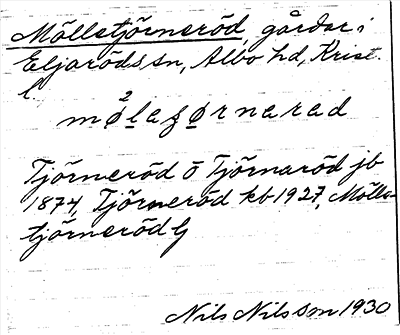 Möllstjörneröd, gårdar i
Eljaröds sn, Albo hd, Krist.
l.
mø²laʂørnarad
Tjörneröd ö Tjörnaröd jb
1874, Tjörneröd kb 1927, Mölls-
tjörneröd G
Nils Nilsson 1930